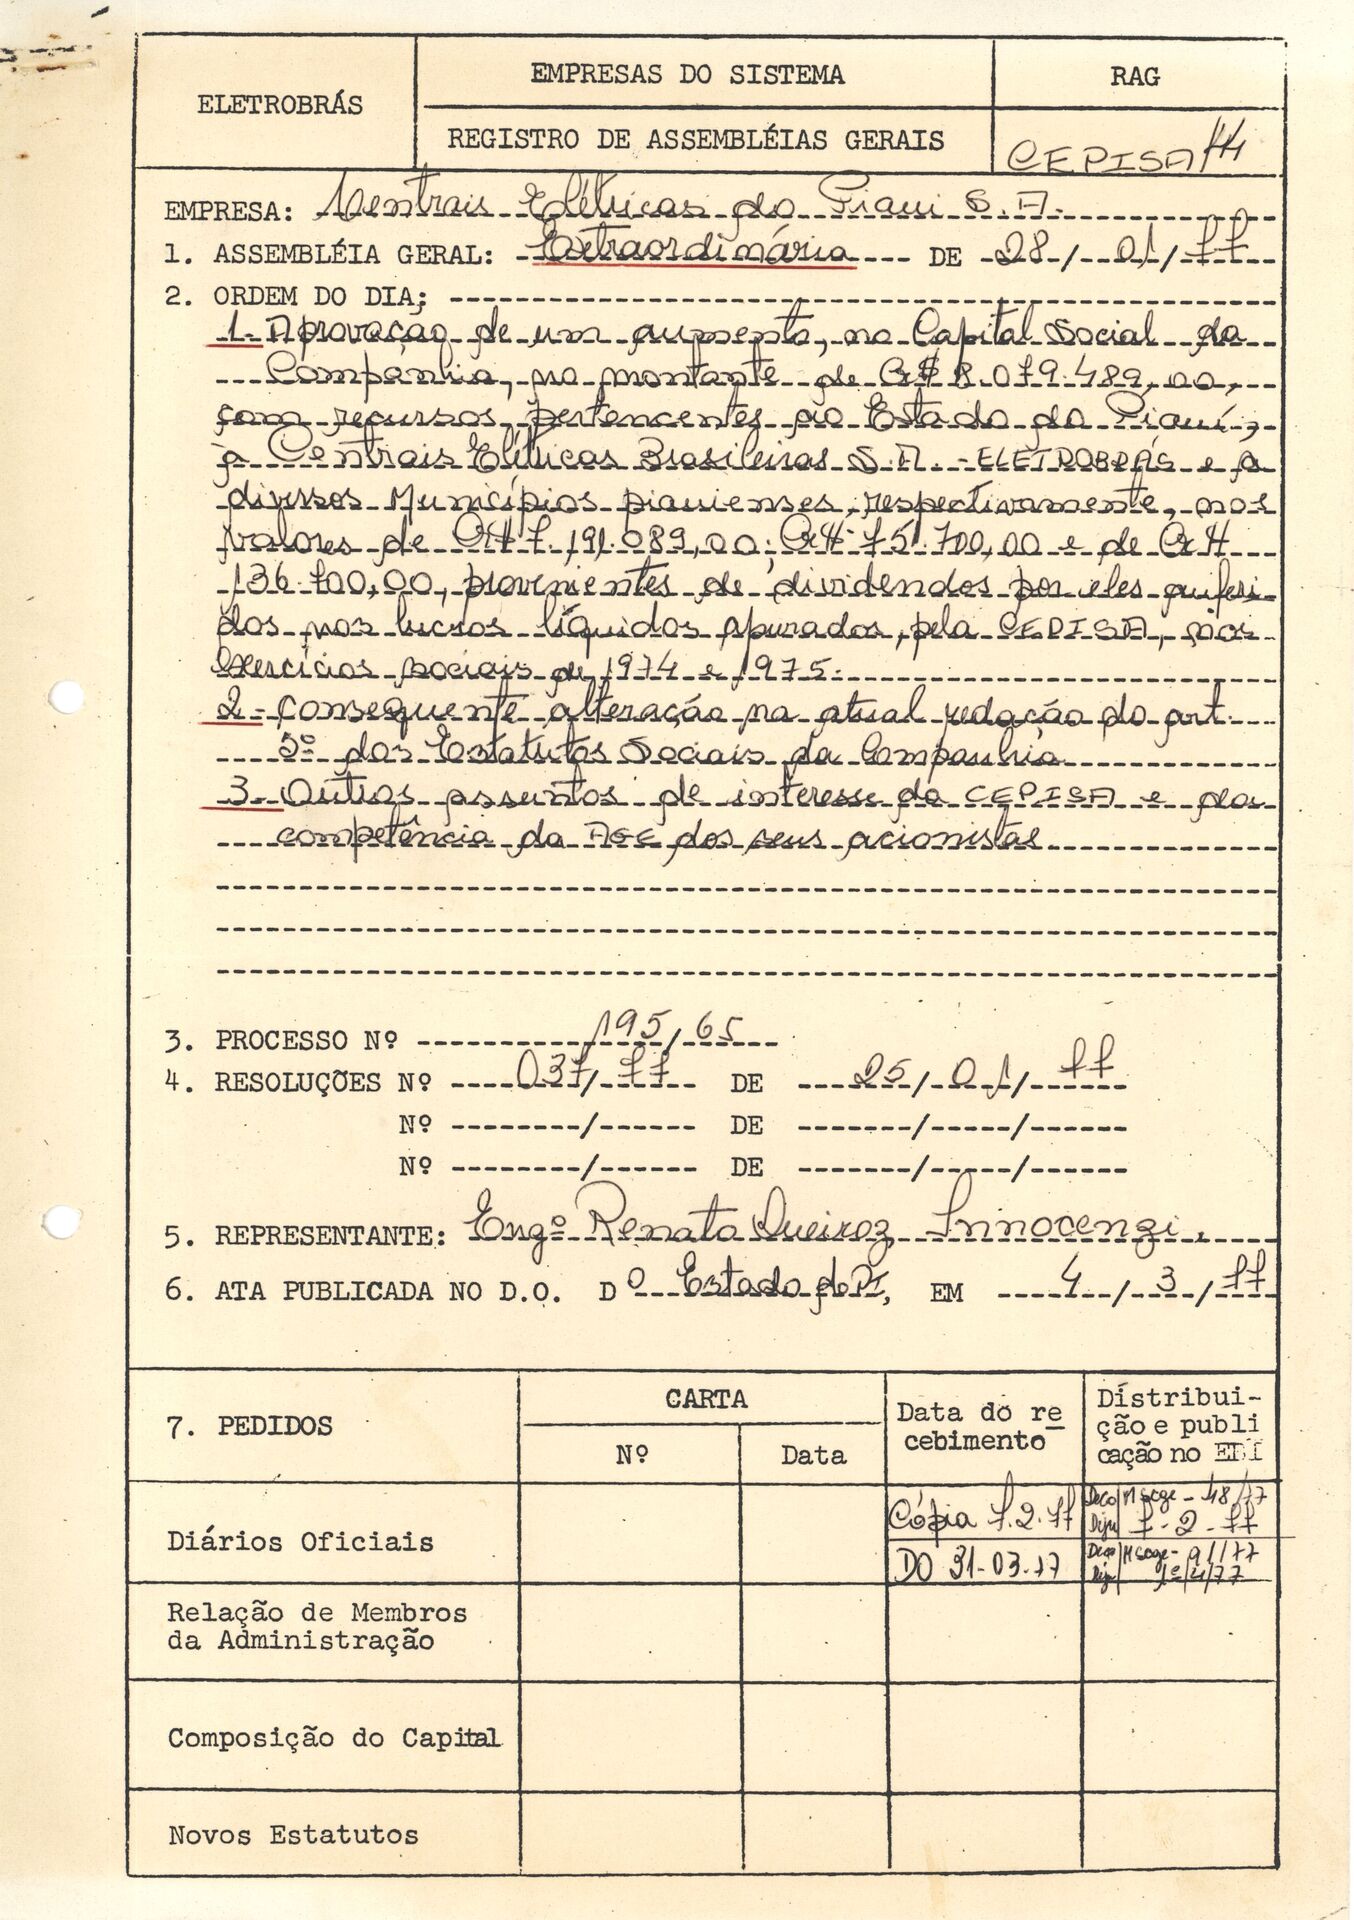 ELETROBRÁS
EMPRESAS DO SISTEMA
RAG
REGISTRO DE ASSEMBLÉIAS GERAIS
CEPISA
EMPRESA: Centrais Elétricas do Piauí S.A.
1. ASSEMBLÉIA GERAL: Extraordinária DE 28/01/77
2. ORDEM DO DIA;
1. Aprovação de um aumento, no Capital Social da
Companhia, no montante de Cr$ 8.079.489,00,
com recursos pertencentes ao Estado do Piauí,
à Centrais Elétricas Brasileiras S.A. - ELETROBRÁS e a
diversos Municípios piauienses, respectivamente, nos
valores de Cr$ 7.191.089,00; Cr$ 751.700,00 e de Cr$
136.700,00, provenientes de dividendos por eles auferi-
dos nos lucros líquidos apurados, pela CEPISA, nos
exercícios sociais de 1974 e 1975.
2 - Consequente alteração na atual redação do art.
5º dos Estatutos Sociais da Companhia
3. Outros assuntos de interesse da CEPISA e da
competência da AGE dos seus acionistas
3. PROCESSO Nº 195/65
4. RESOLUÇÕES Nº 037/77 DE 25/01/77
Nº / DE / /
Nº / DE / /
5. REPRESENTANTE: Engº Renato Queiroz Innocenzi.
6. ATA PUBLICADA NO D.O. Dº Estado do PI, EM 4/3/77
7. PEDIDOS
CARTA
Nº
Data
Data do re
cebimento
Distribui-
ção e publi
cação no EBI
Diários Oficiais
Cópia 7.2.77
7-2-77
DO 31-03-77
1º/4/77
Relação de Membros
da Administração
Composição do Capital
Novos Estatutos